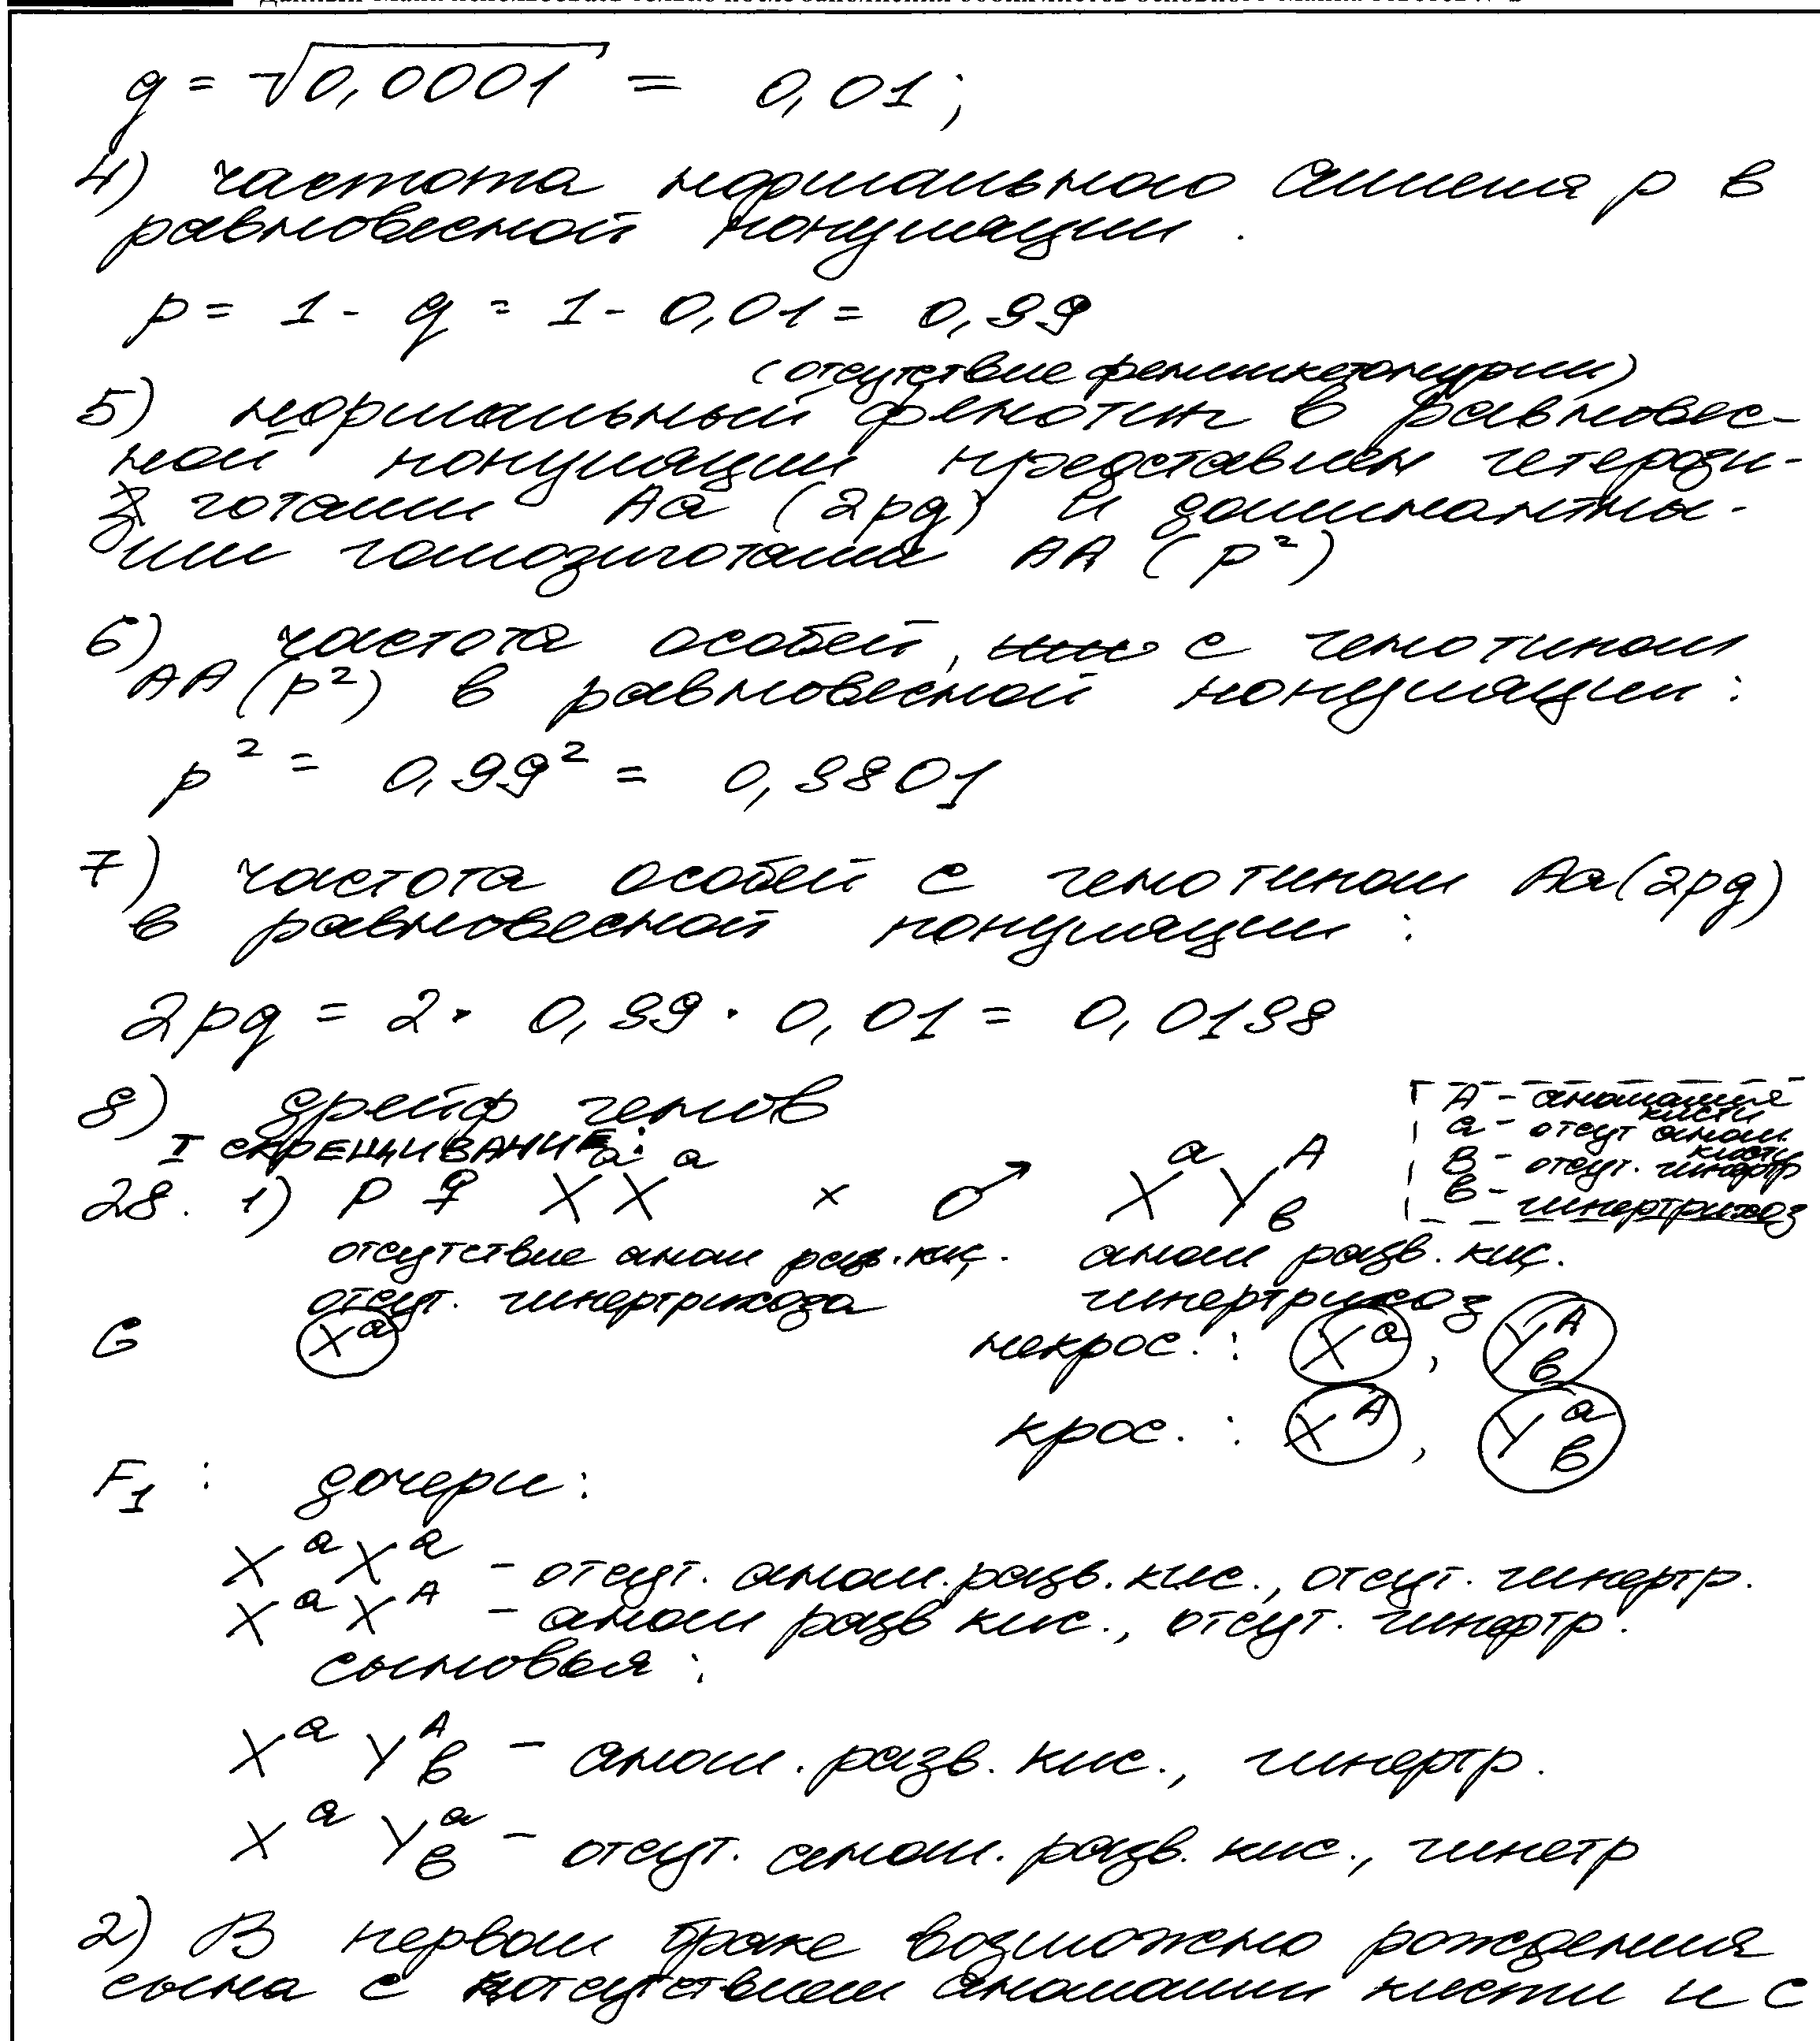 q = √0,0001 = 0,01;
4) частота нормального аллеля p в
равновесной популяции.
p = 1 - q = 1 - 0,01 = 0,99
(отсутствие фенилкетонурии)
5) нормальный фенотип в равновес-
ной популяции представлен гетерози-
готами Aa (2pq) и доминантны-
ми гомозиготами AA (p²)
6) частота особей, с генотипом
AA (p²) в равновесной популяции:
p² = 0,99² = 0,9801
7) частота особей с генотипом Aa (2pq)
в равновесной популяции:
2pq = 2 · 0,99 · 0,01 = 0,0198
8) дрейф генов
A - аномалия
кисти
a - отсут аном.
кисти
B - отсут. гипертр
в - гипертрихоз
I СКРЕЩИВАНИЕ:
28. 1) P ♀ XᵃXᵃ x ♂ XᵃYᴬв
отсутствие аном разв. кис. аном разв. кис.
отсут. гипертрихоза гипертрихоз
G Xᵃ некрос.: Xᵃ, Yᴬв
крос.: Xᴬ, Yᵃв
F₁: дочери:
XᵃXᵃ - отсут. аном. разв. кис., отсут. гипертр.
XᵃXᴬ - аном разв кис., отсут. гипертр.
сыновья:
XᵃYᴬв - аном. разв. кис., гипертр.
XᵃYᵃв - отсут. аном. разв. кис., гипетр
2) В первом браке возможно рождения
сына с отсутствием аномалии кисти и с